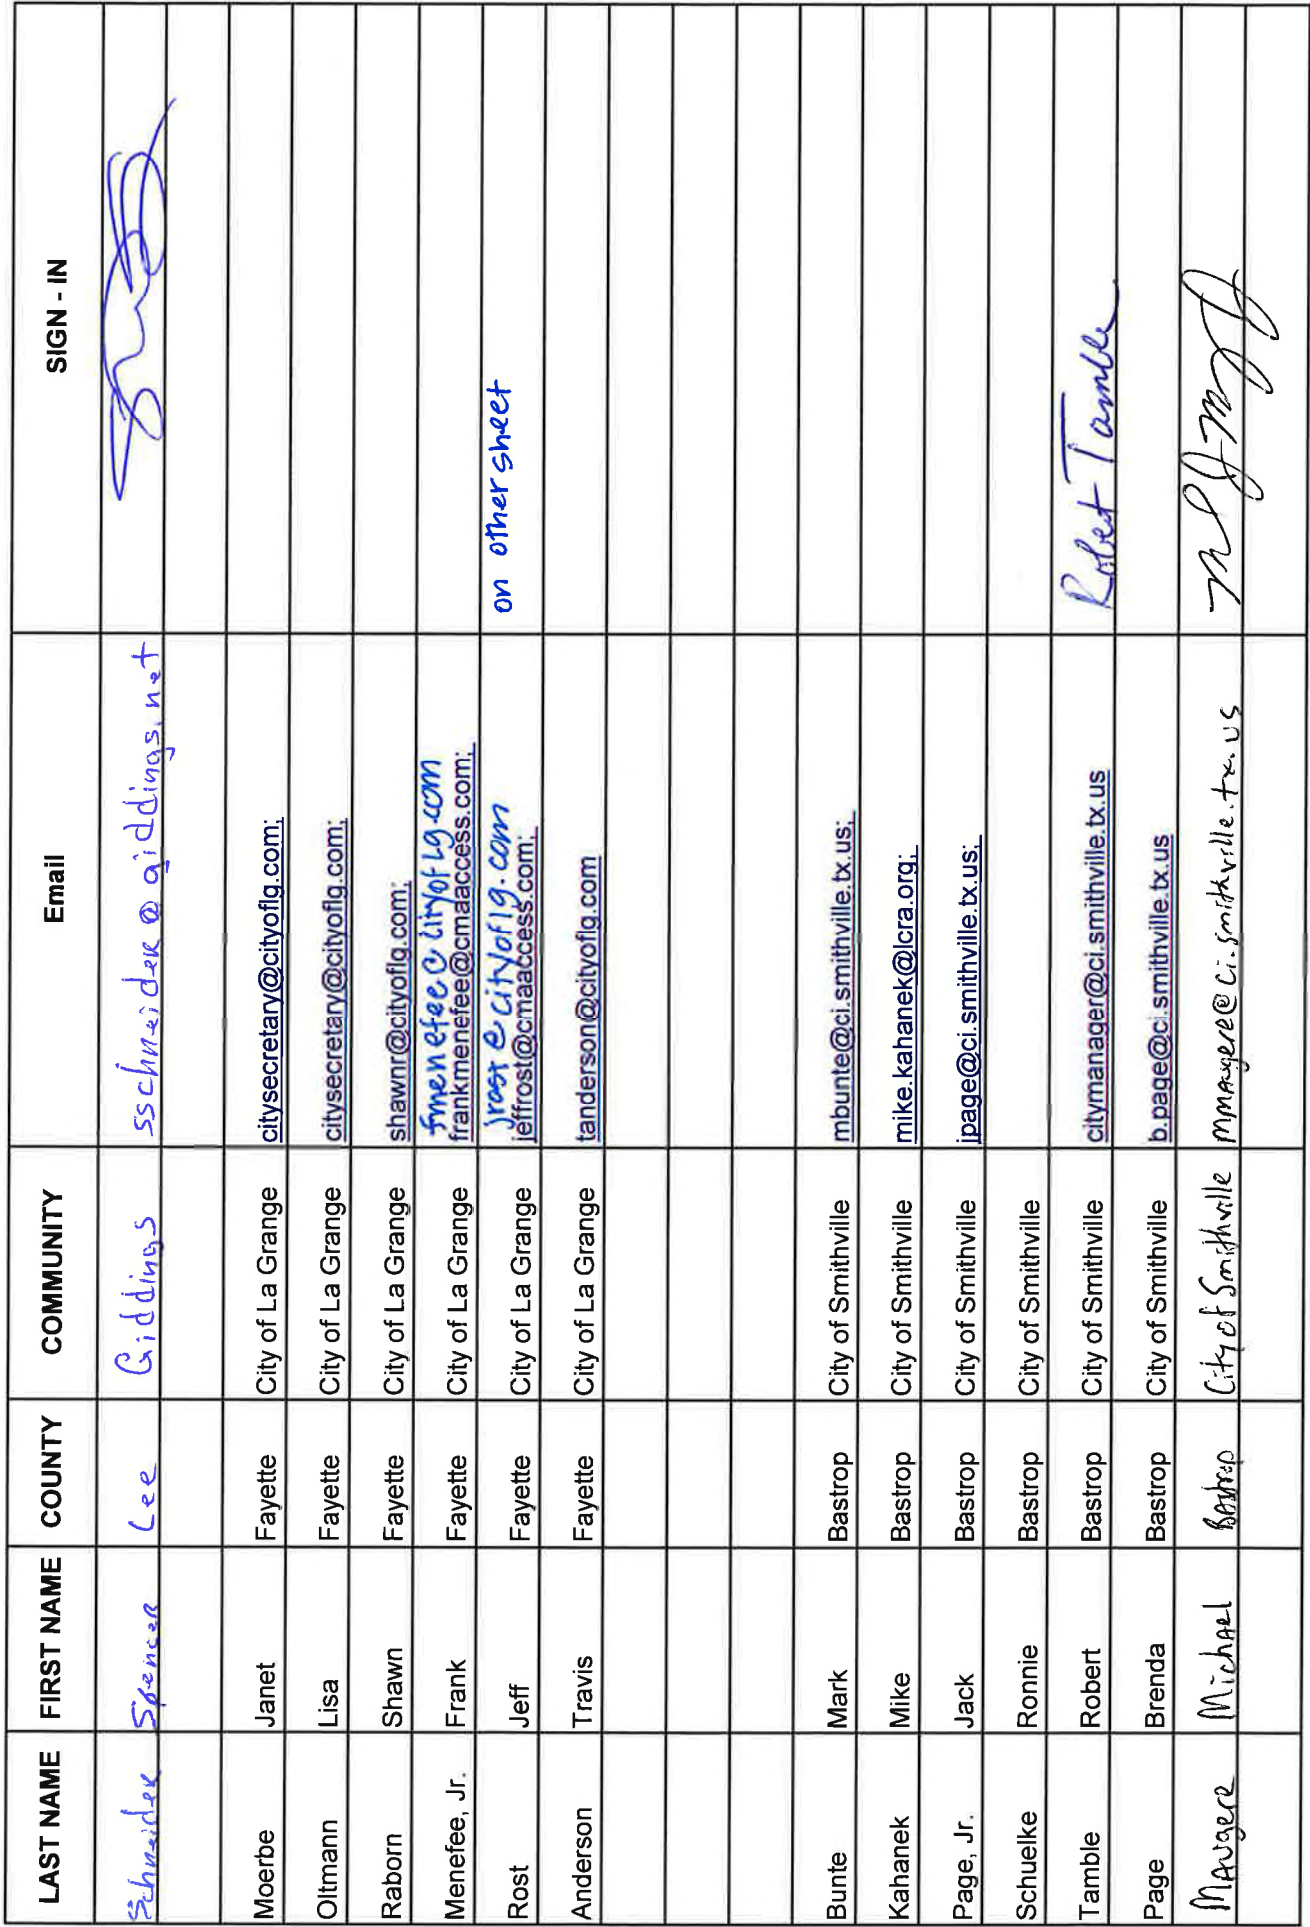 LAST NAME FIRST NAME COUNTY COMMUNITY Email SIGN - IN
Schneider Spencer Lee Giddings sschneider@giddings.net
Moerbe Janet Fayette City of La Grange citysecretary@cityoflg.com;
Oltmann Lisa Fayette City of La Grange citysecretary@cityoflg.com;
Raborn Shawn Fayette City of La Grange shawnr@cityoflg.com;
fmenefee@cityoflg.com
Menefee, Jr. Frank Fayette City of La Grange frankmenefee@cmaaccess.com;
jrost@cityoflg.com
Rost Jeff Fayette City of La Grange jeffrost@cmaaccess.com; on other sheet
Anderson Travis Fayette City of La Grange tanderson@cityoflg.com
Bunte Mark Bastrop City of Smithville mbunte@ci.smithville.tx.us;
Kahanek Mike Bastrop City of Smithville mike.kahanek@lcra.org;
Page, Jr. Jack Bastrop City of Smithville jpage@ci.smithville.tx.us;
Schuelke Ronnie Bastrop City of Smithville
Tamble Robert Bastrop City of Smithville citymanager@ci.smithville.tx.us Robert Tamble
Page Brenda Bastrop City of Smithville b.page@ci.smithville.tx.us
Maugere Michael Bastrop City of Smithville mmaugere@ci.smithville.tx.us